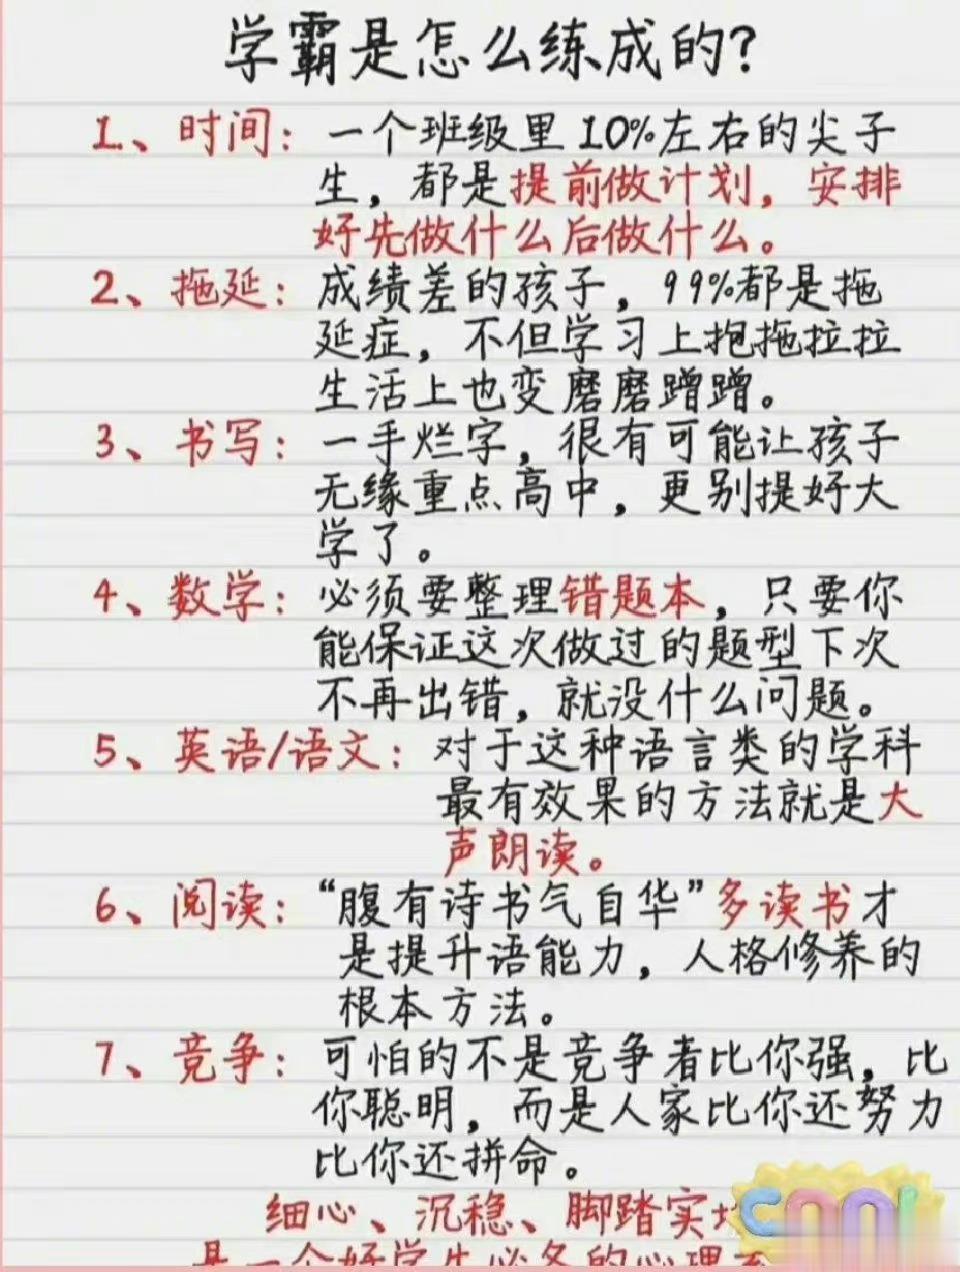 学霸是怎么练成的?
1、时间：一个班级里10%左右的尖子
生，都是提前做计划，安排
好先做什么后做什么。
2、拖延：成绩差的孩子，99%都是拖
延症，不但学习上抱拖拉拉
生活上也变磨磨蹭蹭。
3、书写：一手烂字，很有可能让孩子
无缘重点高中，更别提好大
学了。
4、数学：必须要整理错题本，只要你
能保证这次做过的题型下次
不再出错，就没什么问题。
5、英语/语文：对于这种语言类的学科
最有效果的方法就是大
声朗读。
6、阅读：“腹有诗书气自华”多读书才
是提升语能力，人格修养的
根本方法。
7、竞争：可怕的不是竞争者比你强，比
你聪明，而是人家比你还努力
比你还拼命。
细心、沉稳、脚踏实
是一个好学生必备的心理